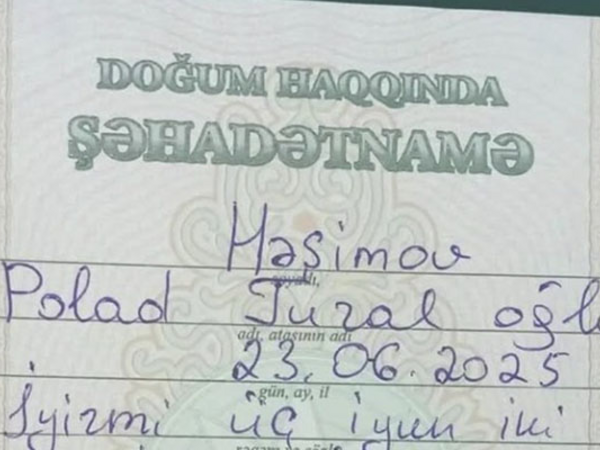 DOĞUM HAQQINDA
ŞƏHADƏTNAMƏ
Həşimov
soyadı,
Polad Tural oğl
adı, atasının adı
23.06.2025
gün, ay, il
İyirmi üç iyun iki